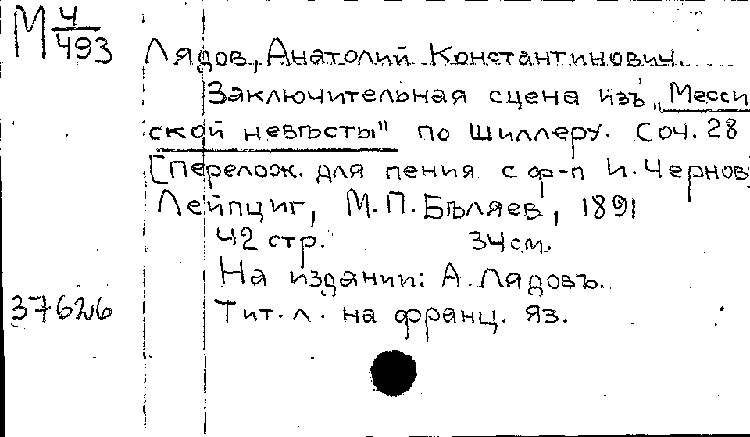 М 4/493
Лядов, Анатолий Константинович.
Заключительная сцена изъ „Месси
ской невѣсты" по Шиллеру. Соч. 28
[перелож. для пения с ф-п И. Чернов
Лейпциг, М. П. Бѣляев, 1891
42 стр. 34 см.
На издании: А. Лядовъ.
37626 Тит. л. на франц. яз.